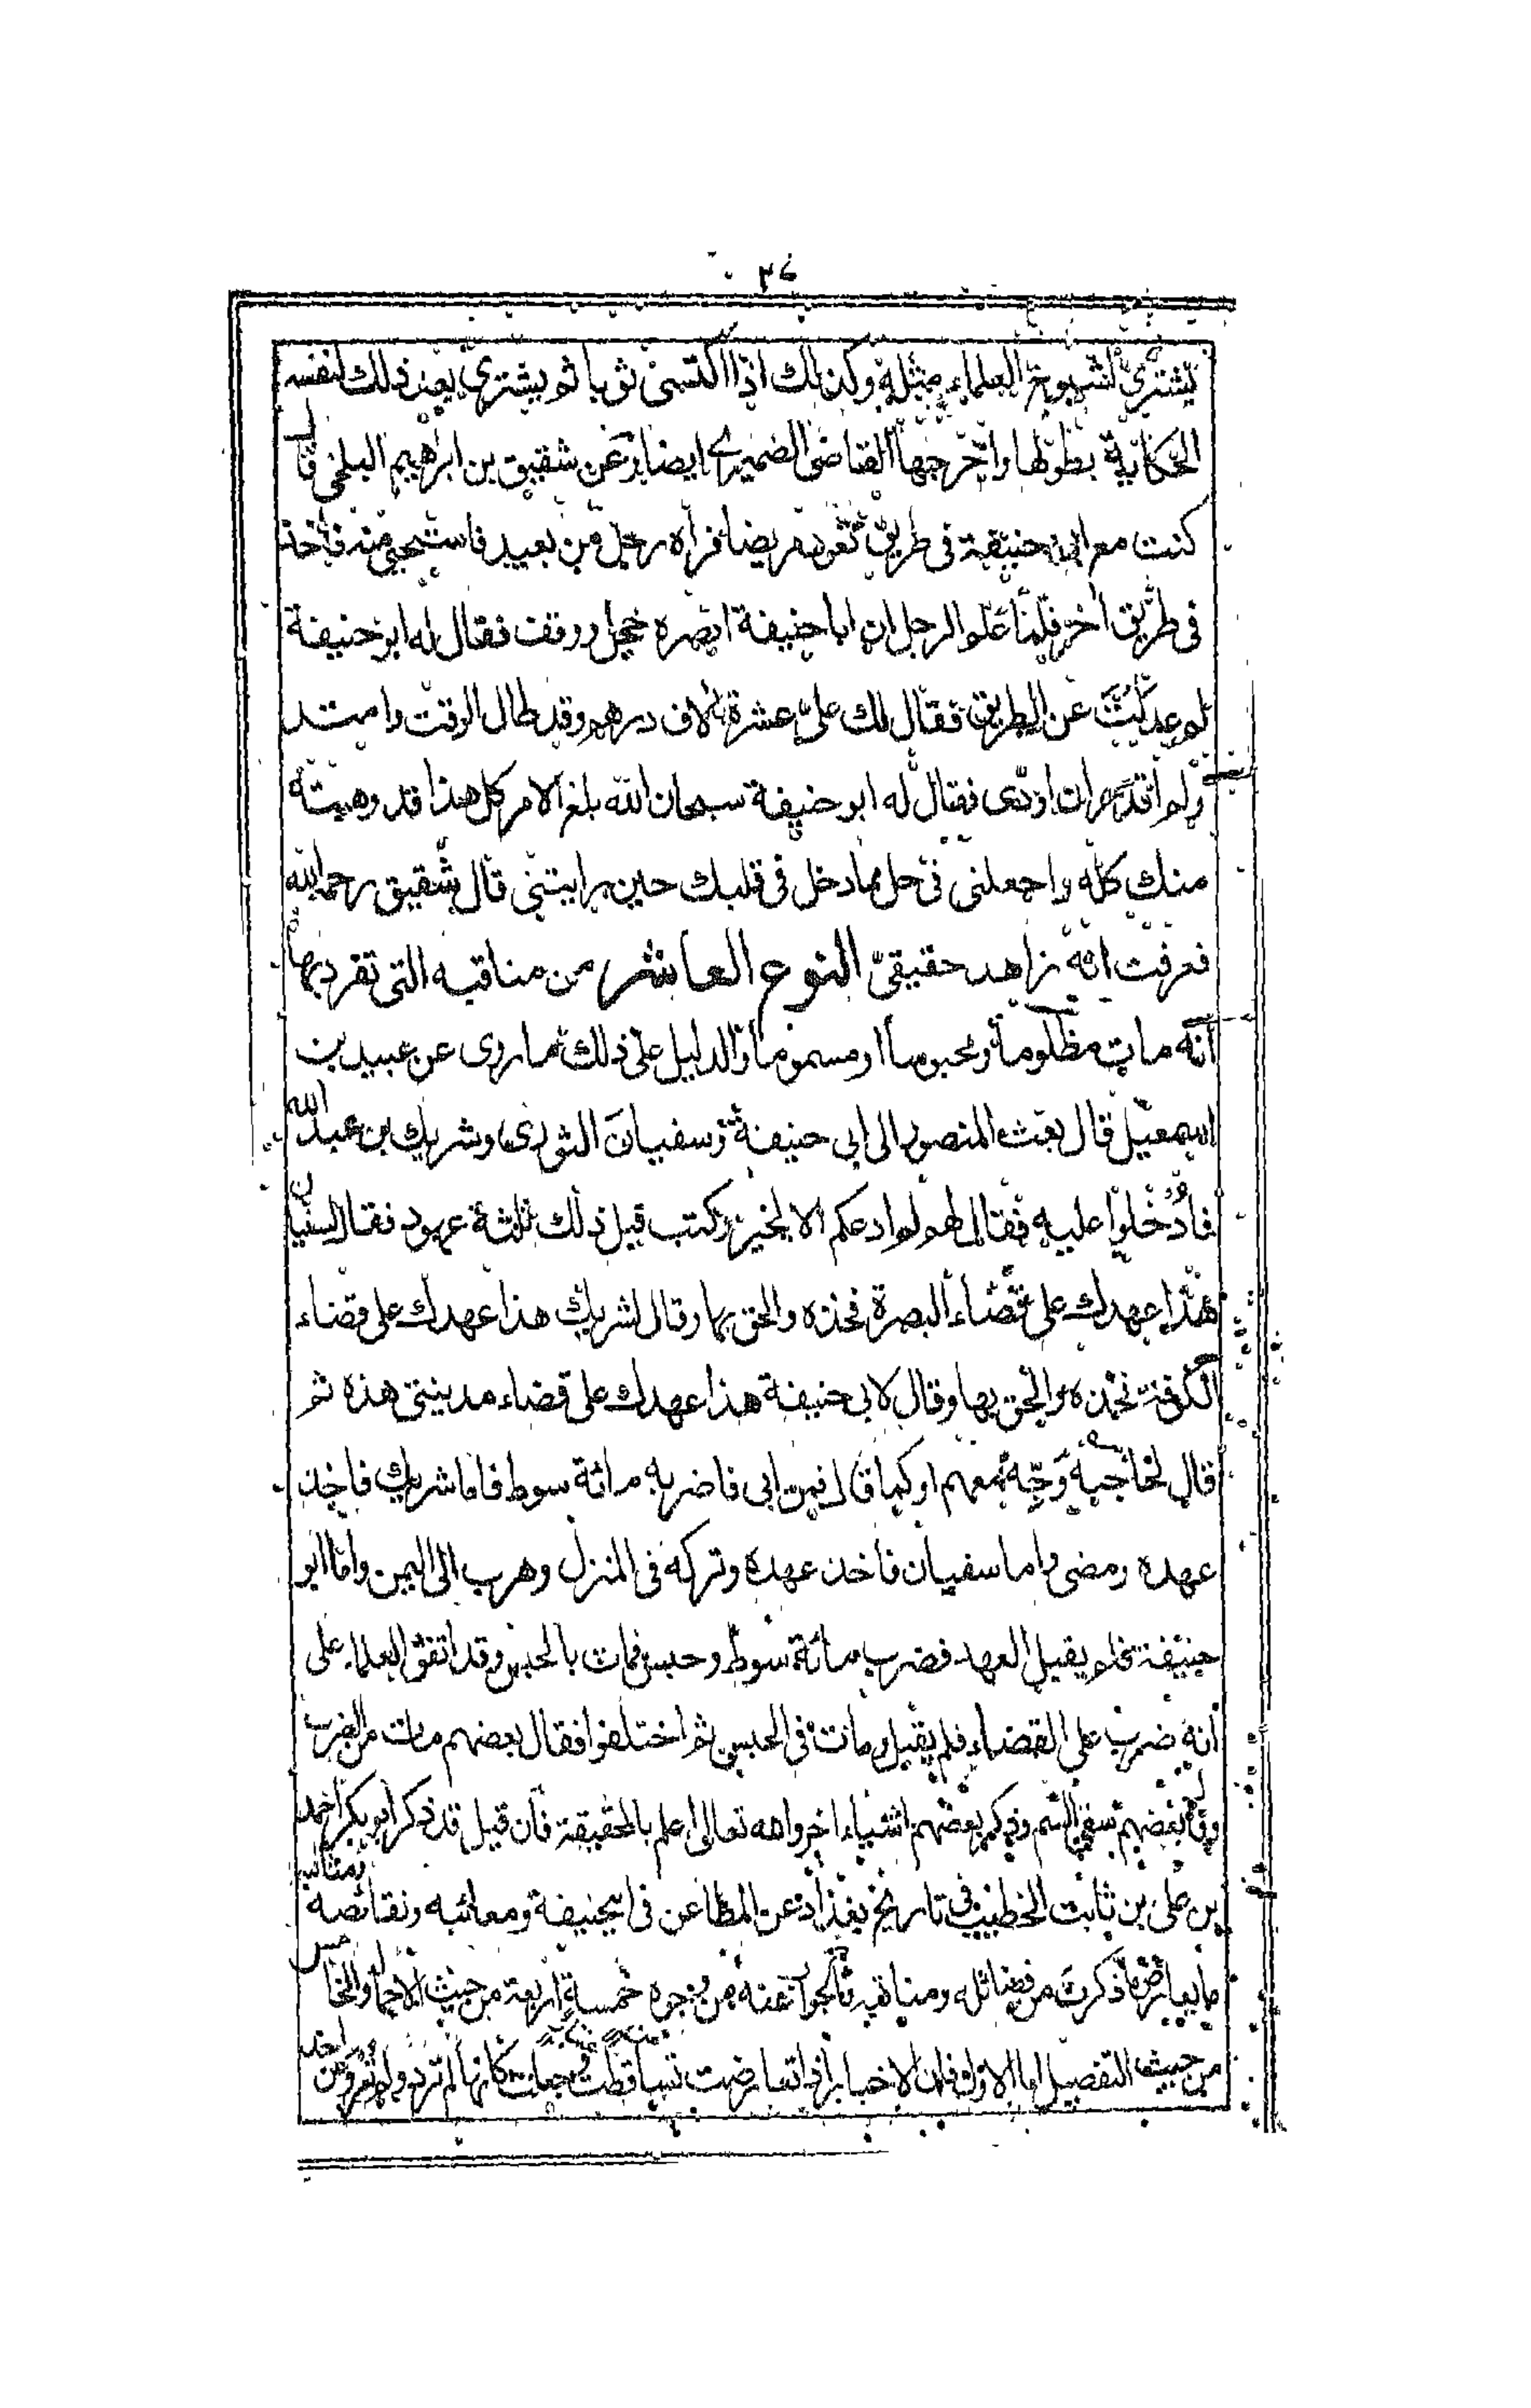 ٣٤
يشترى لشيوخ العلماء مثله وكذلك اذا اكتسى ثوبا ثم يشترى بعد ذلك لنفسه
الحكاية بطولها واخرجها القاضى الضميرے ايضا وعن شقيق بن ابرهيم البلخى قال
كنت مع ابى حنيفة فى طريق نعود مريضا فراه رجل من بعيد فاستحيى منه فاخذ
فى طريق اخر فلما علم الرجل ان ابا حنيفة ابصره خجل ووقف فقال له ابو حنيفة
لم عدلت عن الطريق فقال لك علىّ عشرة الاف درهم وقد طال الوقت وامتد
ولم اقدر ان اؤدى فقال له ابو حنيفة سبحان الله بلغ الامر كل هذا قد وهبته
منك كله واجعلنى فى حل مما دخل فى قلبك حين رايتنى قال شقيق رحمه الله
فعرفت انه زاهد حقيقىّ النوع العاشر من مناقبه التى تفرد بها
انه مات مظلوما ومحبوسا ومسموما والدليل على ذلك ما روى عن عبيد بن
اسمعيل قال بعث المنصور الى ابى حنيفة وسفيان الثورى وشريك بن عبد الله
فأُدْخلوا عليه فقال لهم لم ادعكم الا لخير وكتب قبل ذلك ثلثة عهود فقال لسفيان
هذا عهدك على قضاء البصرة فخذه والحق بها وقال لشريك هذا عهدك على قضاء
الكوفة فخذه والحق بها وقال لابى حنيفة هذا عهدك على قضاء مدينتى هذه ثم
قال لحاجبه وَجّه معهم او كما قال فمن ابى فاضربه مائة سوط فاما شريك فاخذ
عهده ومضى واما سفيان فاخذ عهده وتركه فى المنزل وهرب الى اليمن واما ابو
حنيفة فلم يقبل العهد فضرب مائة سوط وحبس فمات بالحبس وقد اتفق العلماء على
انه ضرب على القضاء فلم يقبل ومات فى الحبس ثم اختلفوا فقال بعضهم مات من الضرب
وقال بعضهم سقى السم وذكر بعضهم اشياء اخر والله تعالى اعلم بالحقيقة فان قيل قد ذكر ابو بكر احمد
بن على بن ثابت الخطيب فى تاريخ بغداد عن المطاعن فى ابيحنيفة ومعائبه ونقائصه ومثالبه
ما يعارض ما ذكرت من فضائله ومناقبه فالجواب عنه من وجوه خمسة اربعة من حيث الاجمال والخامس
من حيث التفصيل اما الاول فلان الاخبار اذا تعارضت تساقطت جعلت كانها لم ترد ولم